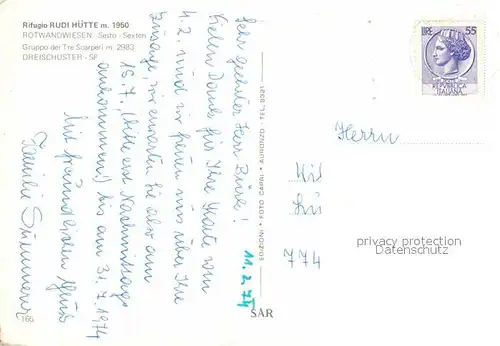 Rifugio RUDI HÜTTE m. 1950
ROTWANDWIESEN Sesto - Sexten
Gruppo dei Tre Scarperi m. 2983
DREISCHUSTER - SP.
Sehr geehrter Herr
Vielen Dank für Ihre Karte vom
4.2. und wir freuen uns über Ihre
Zusage, wir erwarten Sie also am
18.7. (bitte erst Nachmittags
ankommen!) bis am 31.7.1974
Mit freundlichen Gruß
Familie
11.2.74
EDIZIONI * FOTO CAPRI * AURONZO - TEL. 9321
SAR
165
LIRE 55
REPVBBLICA
ITALIANA
Herrn
774
privacy protection
Datenschutz